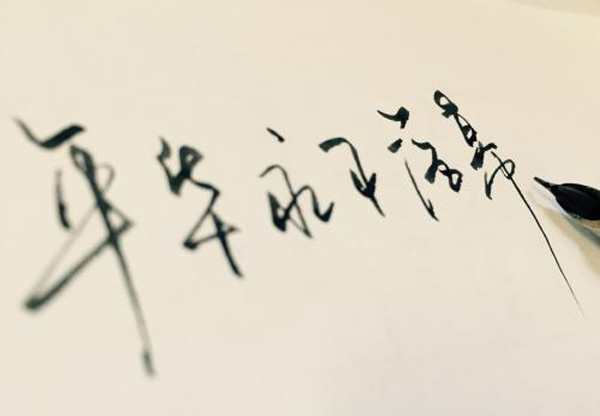 年华永不落幕